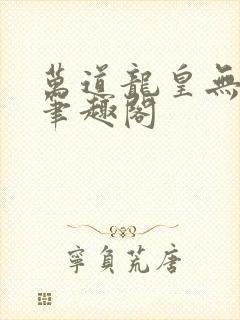 萬道龍皇無
筆趣閣
寧負荒唐